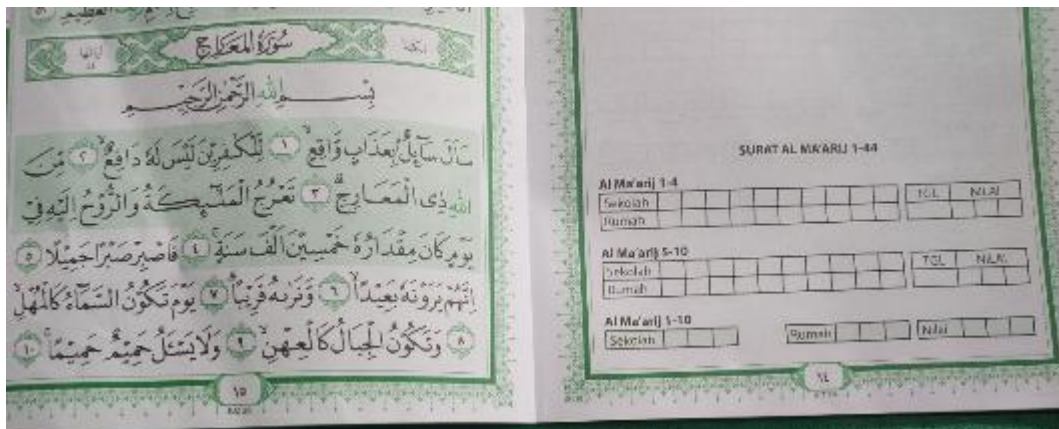 سُوْرَةُ الْمَعَارِجِ
بِسْــــمِ اللّٰهِ الرَّحْمٰنِ الرَّحِيْـــمِ
سَاَلَ سَاۤىِٕلٌۢ بِعَذَابٍ وَّاقِعٍۙ ١ لِّلْكٰفِرِيْنَ لَيْسَ لَهٗ دَافِعٌۙ ٢ مِّنَ
اللّٰهِ ذِى الْمَعَارِجِۗ ٣ تَعْرُجُ الْمَلٰۤىِٕكَةُ وَالرُّوْحُ اِلَيْهِ فِيْ
يَوْمٍ كَانَ مِقْدَارُهٗ خَمْسِيْنَ اَلْفَ سَنَةٍۚ ٤ فَاصْبِرْ صَبْرًا جَمِيْلًا ٥
اِنَّهُمْ يَرَوْنَهٗ بَعِيْدًاۙ ٦ وَّنَرٰىهُ قَرِيْبًاۗ ٧ يَوْمَ تَكُوْنُ السَّمَاۤءُ كَالْمُهْلِۙ
٨ وَتَكُوْنُ الْجِبَالُ كَالْعِهْنِۙ ٩ وَلَا يَسْـَٔلُ حَمِيْمٌ حَمِيْمًاۚ ١٠
١٥
SURAT AL MA'ARIJ 1-44
Al Ma'arij 1-4
Sekolah
Rumah
TGL NILAI
Al Ma'arij 5-10
Sekolah
Rumah
TGL NILAI
Al Ma'arij 1-10
Sekolah Rumah Nilai
١٤